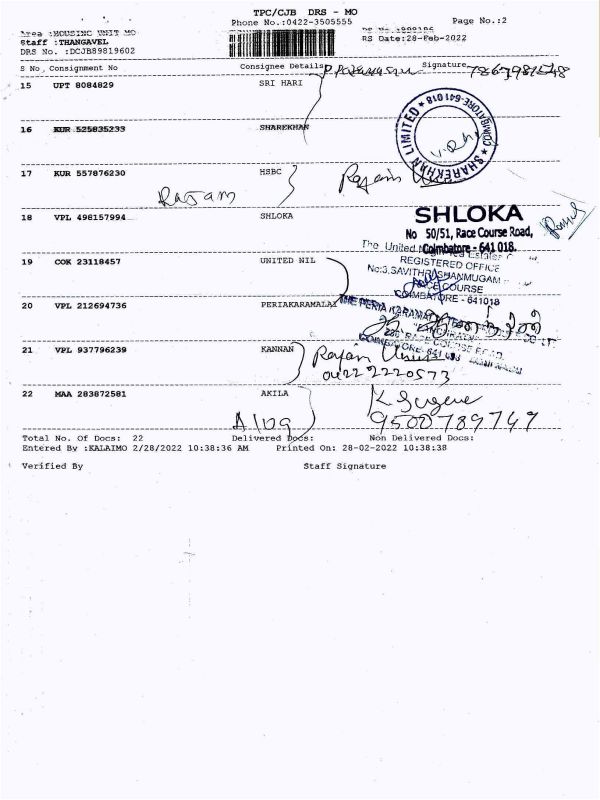 TPC/CJB DRS - MO
Phone No.:0422-3505555 Page No.:2
Area :HOUSING UNIT MO
Staff :THANGAVEL RS Date:28-Feb-2022
DRS No. :DCJB89819602
S No Consignment No Consignee Details Signature
15 UPT 8084829 SRI HARI
16 KUR 525835233 SHAREKHAN
SHAREKHAN LIMITED * COIMBATORE-641018 *
17 KUR 557876230 HSBC
Rajam
18 VPL 498157994 SHLOKA
SHLOKA
No 50/51, Race Course Road,
Coimbatore - 641 018.
19 COK 23118457 UNITED NIL
The United Nilgiri Tea Estates
REGISTERED OFFICE
No:3,SAVITHRI SHANMUGAM
COURSE
COIMBATORE - 641018
20 VPL 212694736 PERIAKARAMALAI
THE PERIA KARAMALAI TEA
RACE COURSE ROAD,
COIMBATORE-641 018
21 VPL 937796239 KANNAN
04222220573
22 MAA 283872581 AKILA
9500789749
Total No. Of Docs: 22 Delivered Docs: Non Delivered Docs:
Entered By :KALAIMO 2/28/2022 10:38:36 AM Printed On: 28-02-2022 10:38:38
Verified By Staff Signature